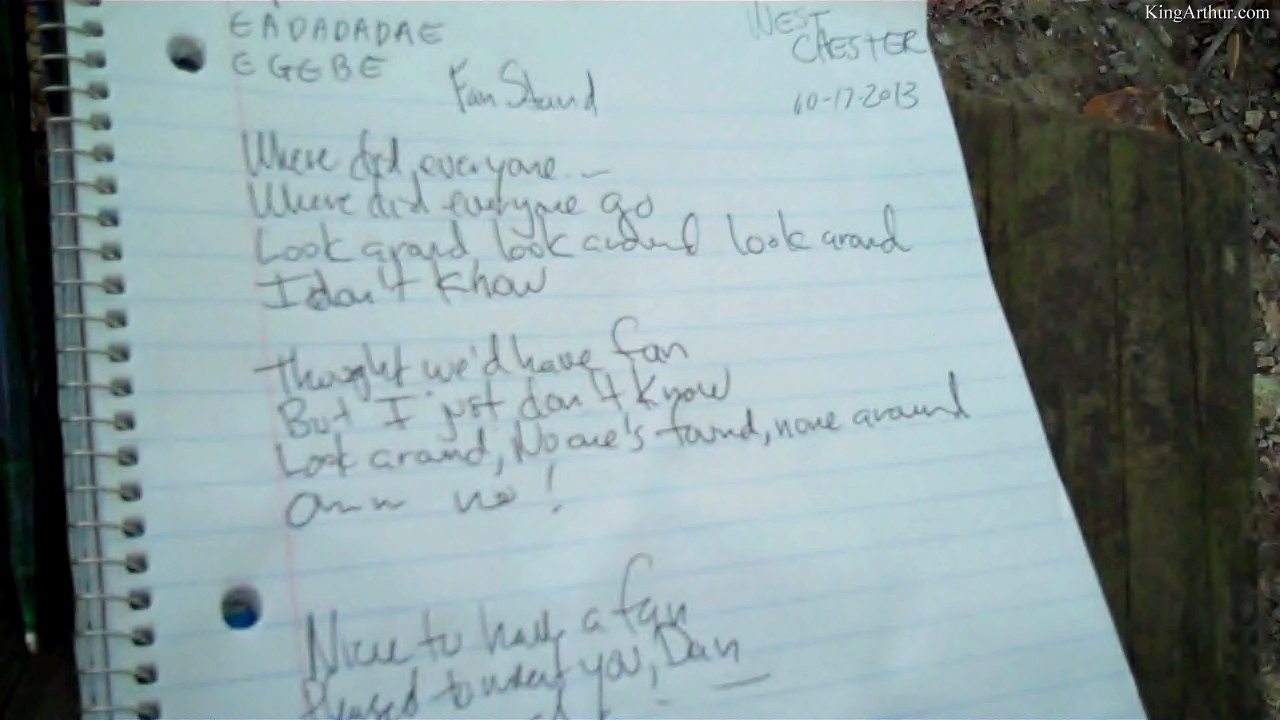 KingArthur.com
EADADADAE
EGEBE
WEST
CHESTER
Fan Stand
10-17-2013
Where did everyone...
Where did everyone go
Look around, look around look around
I don't know
Thought we'd have fan
But I just don't know
Look around, No one's found, none around
no!
Nice to have a fan
Pleased to meet you, Dan